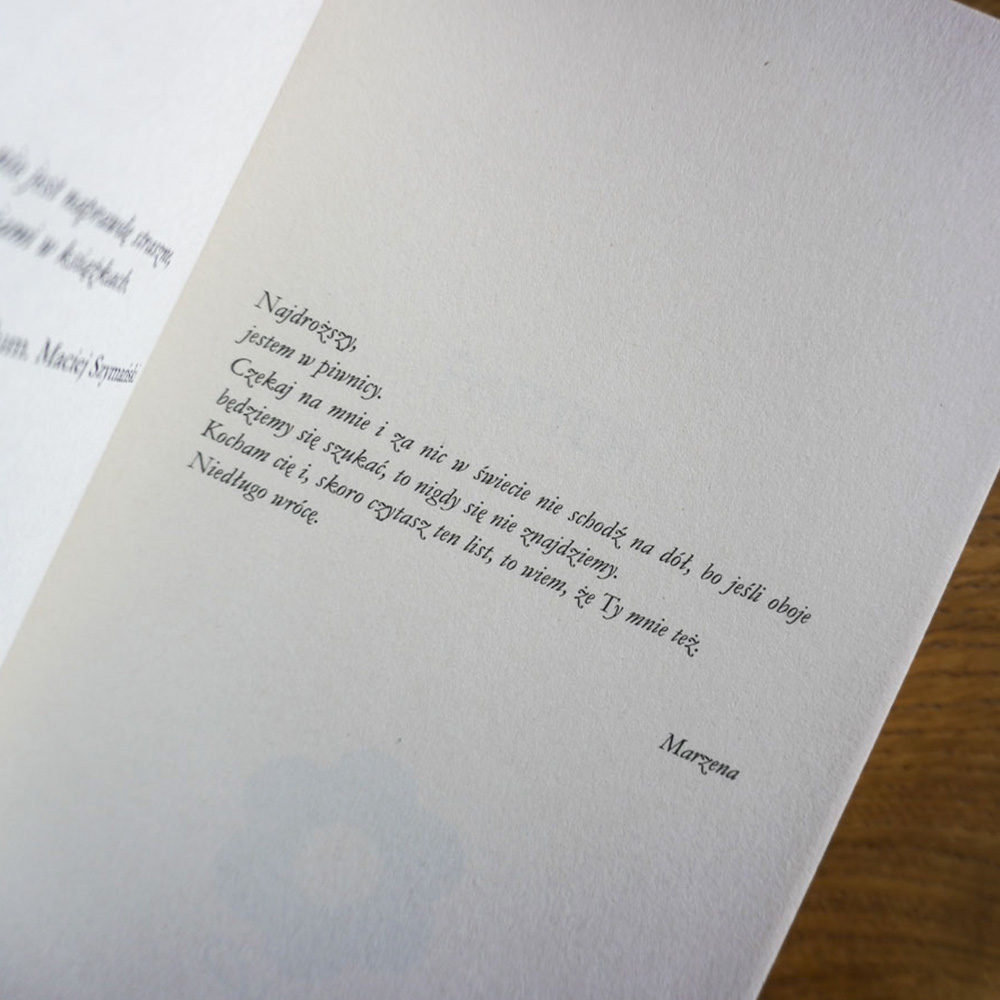 nie jest naprawdę straszn,
w książkach.
tłum. Maciej Szymański
Najdroższy,
jestem w piwnicy.
Czekaj na mnie i za nic w świecie nie schodź na dół, bo jeśli oboje
będziemy się szukać, to nigdy się nie znajdziemy.
Kocham cię i, skoro czytasz ten list, to wiem, że Ty mnie też.
Niedługo wrócę.
Marzena